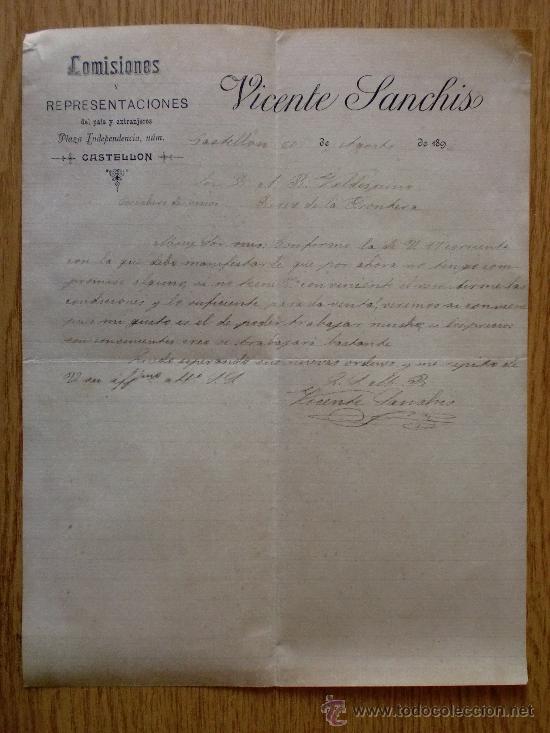 Comisiones
Y
REPRESENTACIONES
del país y extranjeros
Plaza Independencia, núm.
CASTELLON
Vicente Sanchis
Castellon 20 de Agosto de 189
Sor D. A. R. Valdespino
Jerez de la Frontera
Muy Sor mio: Conforme la de V. 17 corriente
con la que debo manifestarle que por ahora no tengo com-
promiso alguno, si no tiene inconveniente el remitirme las
condiciones y lo suficiente para la venta, veremos si conviene
pues mi gusto es el de poder trabajar mucho, si los precios
son convenientes creo se trabajará bastante
Quedo esperando sus nuevas ordenes y me repito de
V. su affmo a. Sto S. S.
Q. S. M. B.
Vicente Sanchis
www.todocoleccion.net